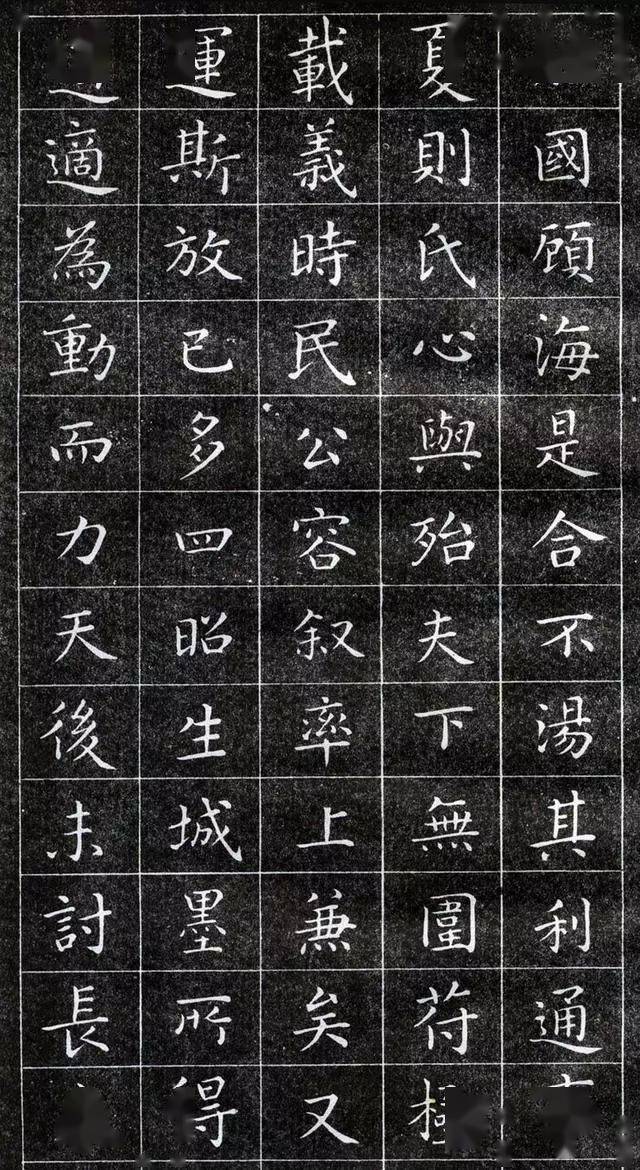 國願海是合不湯其利通
夏則氏心與殆夫下無圍苻
載義時民公容叙率上兼矣又
運斯放已多四昭生城墨所得
適為動而力天後未討長